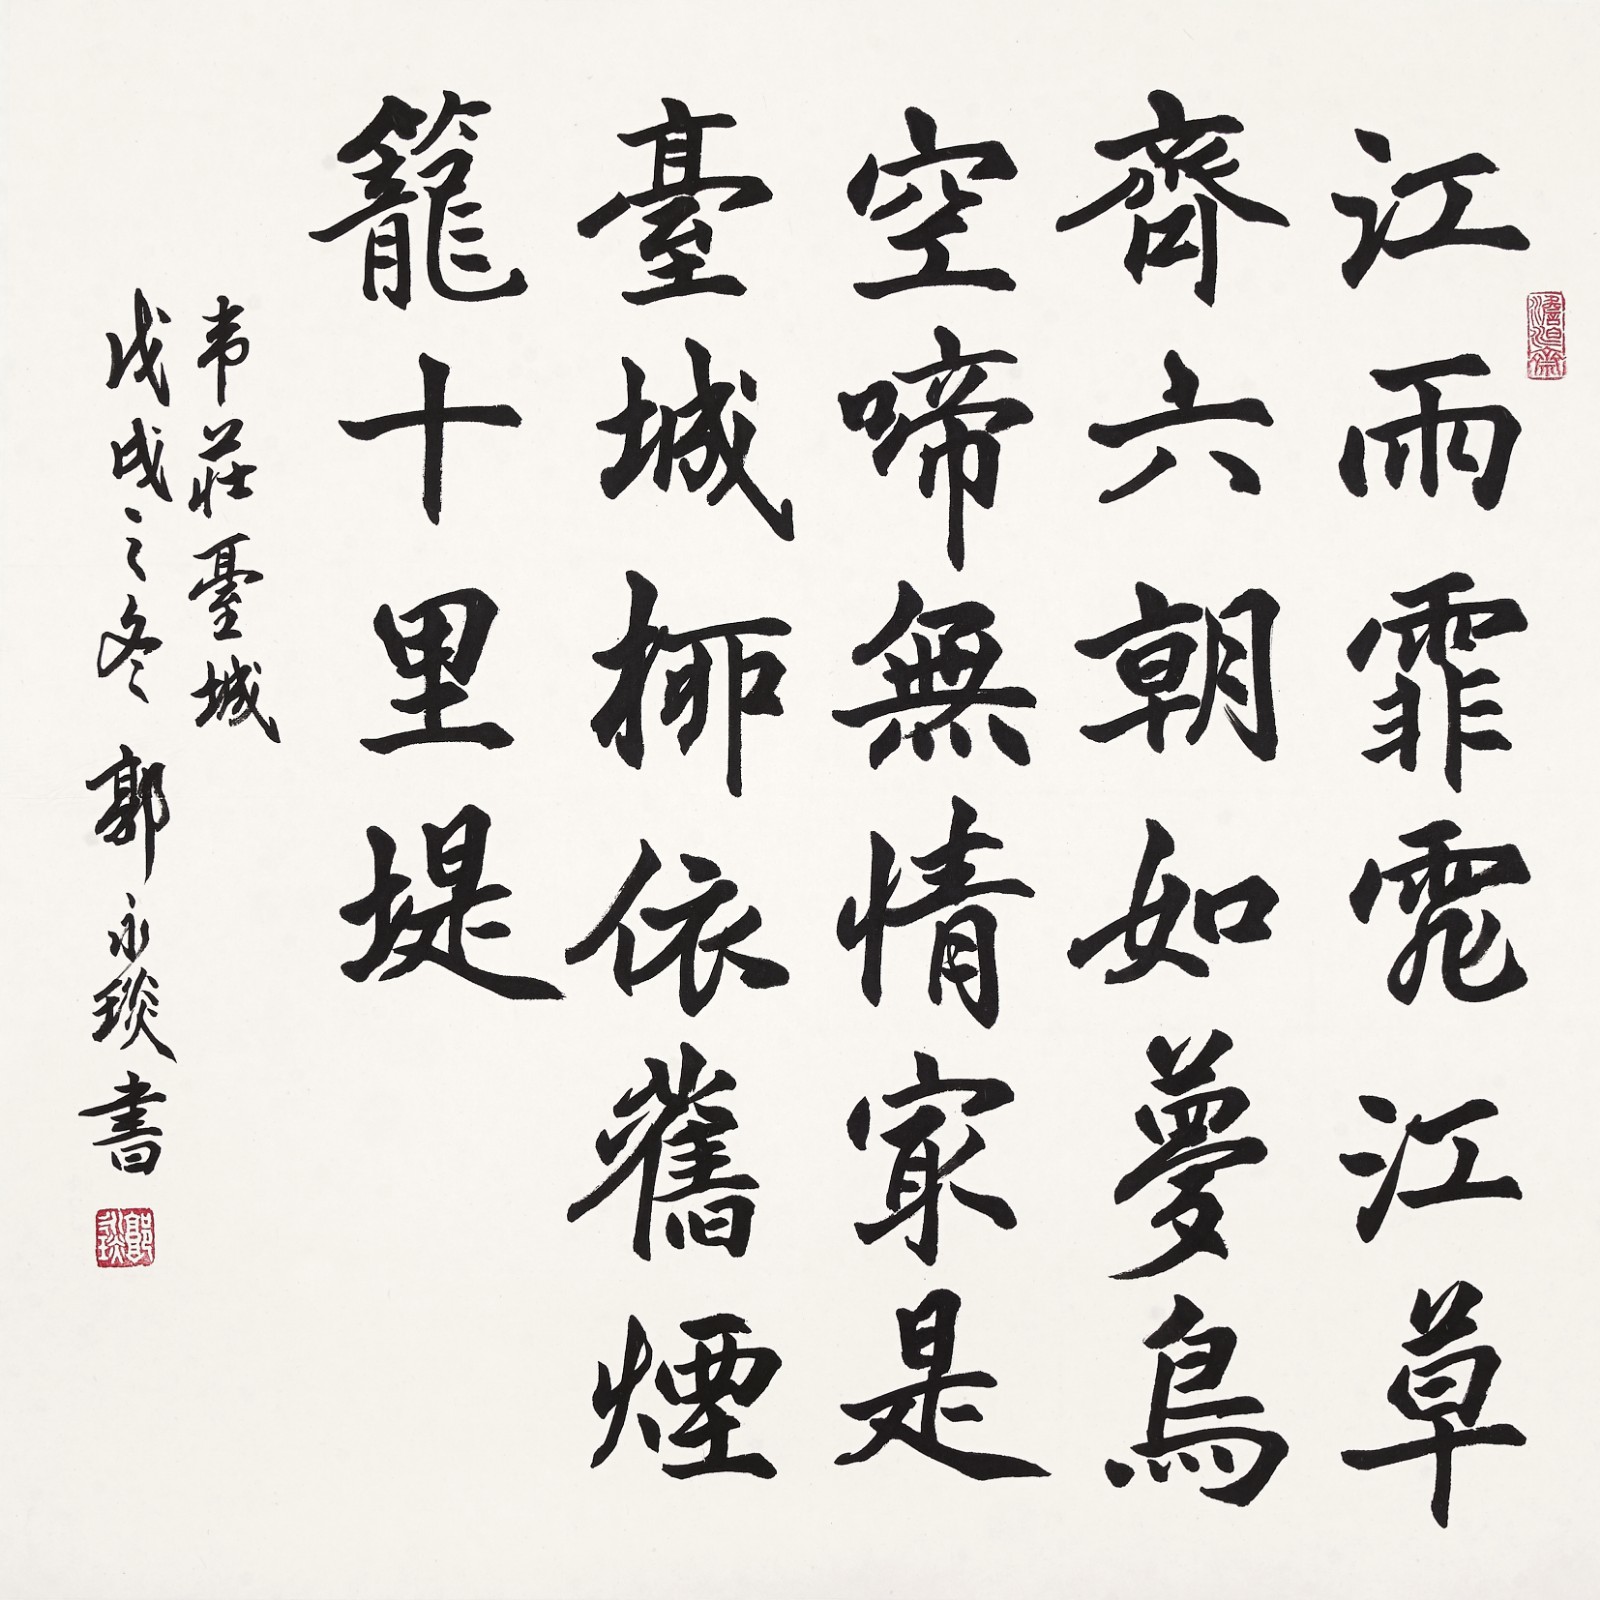 江雨霏霏江草
齊六朝如夢鳥
空啼無情家是
臺城柳依舊煙
籠十里堤
韦莊臺城
戊戌之冬 郭永琰書
郭永琰